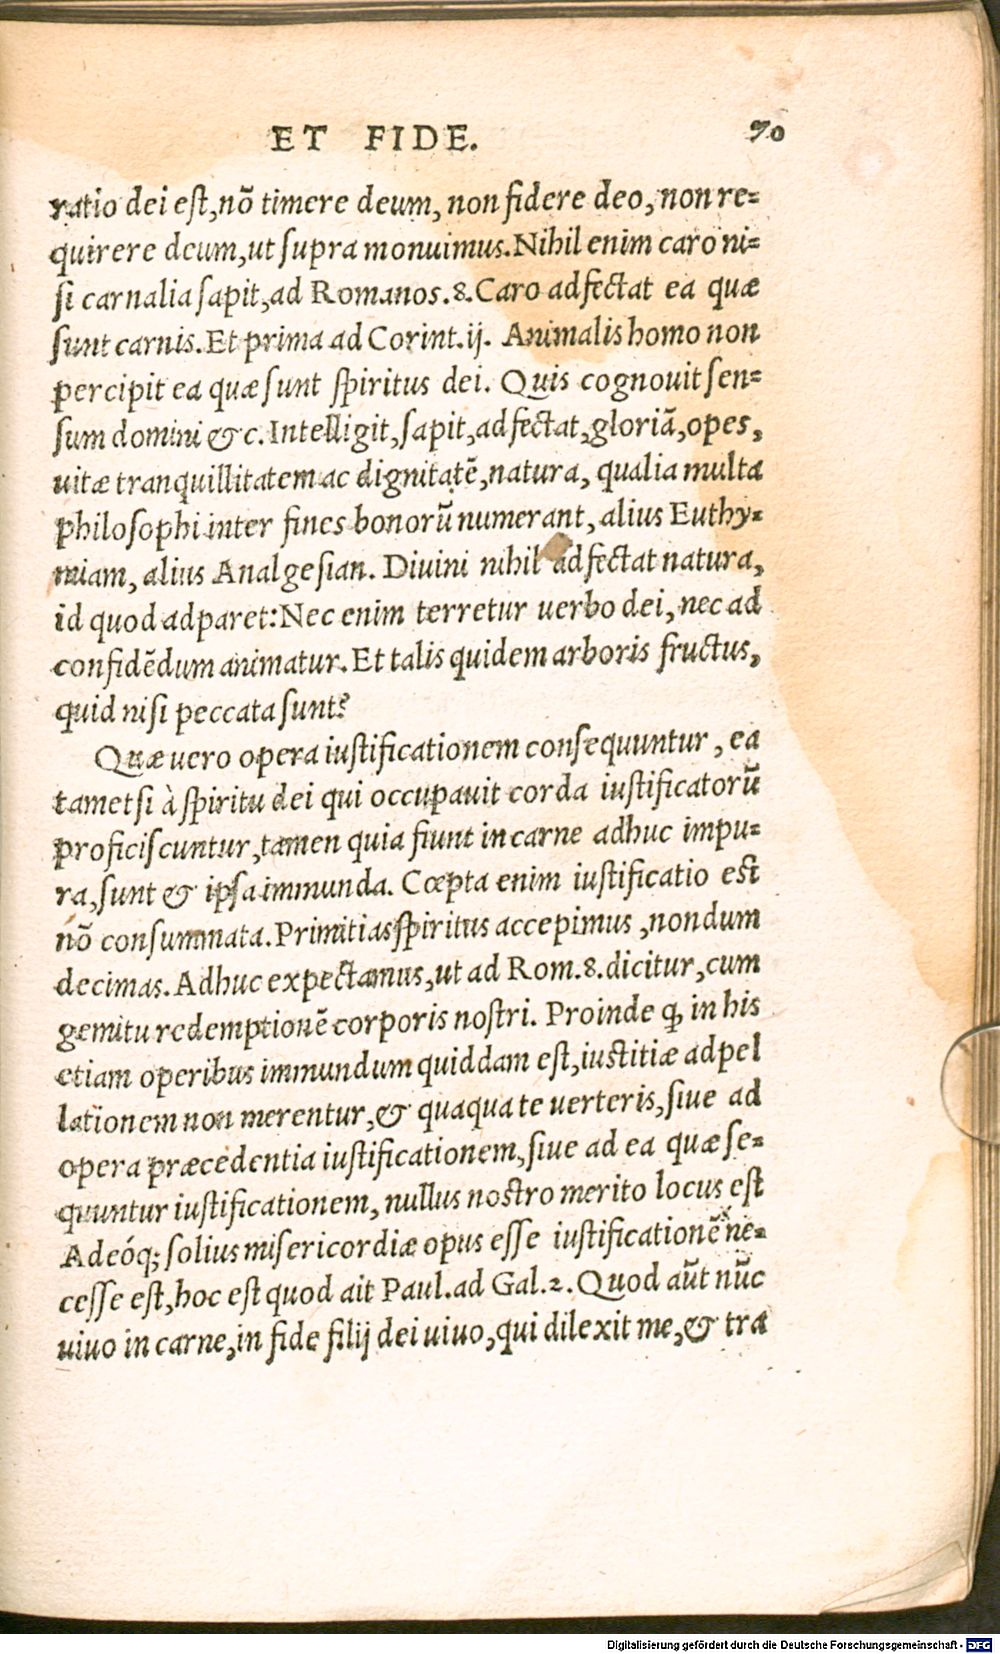 ET FIDE. 70
ratio dei eſt,nõ timere deum, non fidere deo, non re=
quirere deum,ut ſupra monuimus.Nihil enim caro ni=
ſi carnalia ſapit,ad Romanos.8.Caro adfectat ea quæ
ſunt carnis.Et prima ad Corint.ij. Animalis homo non
percipit ea quæ ſunt ſpiritus dei. Quis cognouit ſen=
ſum domini &c.Intelligit,ſapit,adfectat,gloriã,opes,
uitæ tranquillitatem ac dignitatẽ,natura, qualia multa
philoſophi inter fines bonorũ numerant, alius Euthy=
miam, alius Analgeſian. Diuini nihil adfectat natura,
id quod adparet:Nec enim terretur uerbo dei, nec ad
confidẽdum animatur. Et talis quidem arboris fructus,
quid niſi peccata ſunt?
Quæ uero opera iuſtificationem conſequuntur, ea
tametſi à ſpiritu dei qui occupauit corda iuſtificatorũ
proficiſcuntur,tamen quia fiunt in carne adhuc impu=
ra,ſunt & ipſa immunda. Cœpta enim iuſtificatio eſt
nõ conſummata.Primitias ſpiritus accepimus, nondum
decimas. Adhuc expectamus,ut ad Rom.8.dicitur,cum
gemitu redemptionẽ corporis noſtri. Proinde ꝙ in his
etiam operibus immundum quiddam eſt,iuſtitiæ adpel
lationem non merentur,& quaqua te uerteris,ſiue ad
opera præcedentia iuſtificationem,ſiue ad ea quæ ſe=
quuntur iuſtificationem, nullus noſtro merito locus eſt
Adeóq; ſolius miſericordiæ opus eſſe iuſtificationẽ ne=
ceſſe eſt,hoc eſt quod ait Paul.ad Gal.2.Quod aũt nũc
uiuo in carne,in fide filij dei uiuo,qui dilexit me,& tra
Digitalisierung gefördert durch die Deutsche Forschungsgemeinschaft - DFG